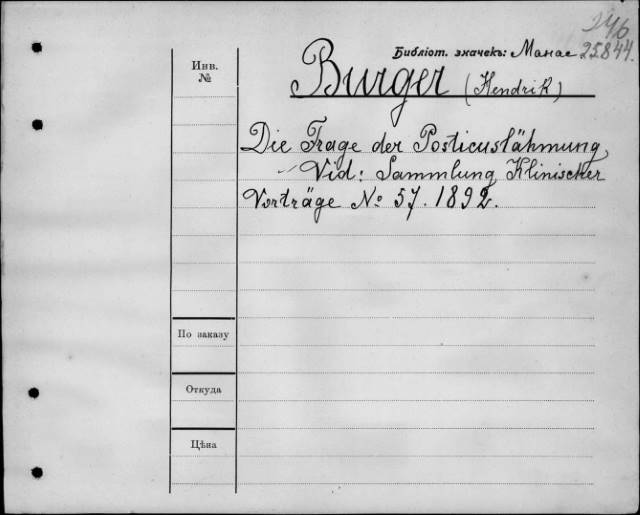 246
Библіот. значекъ: Манас 25844.
Инв.
№
Burger (Hendrik)
Die Frage der Posticuslähmung
Vid: Sammlung Klinischer
Vorträge № 57. 1892.
По заказу
Откуда
Цѣна